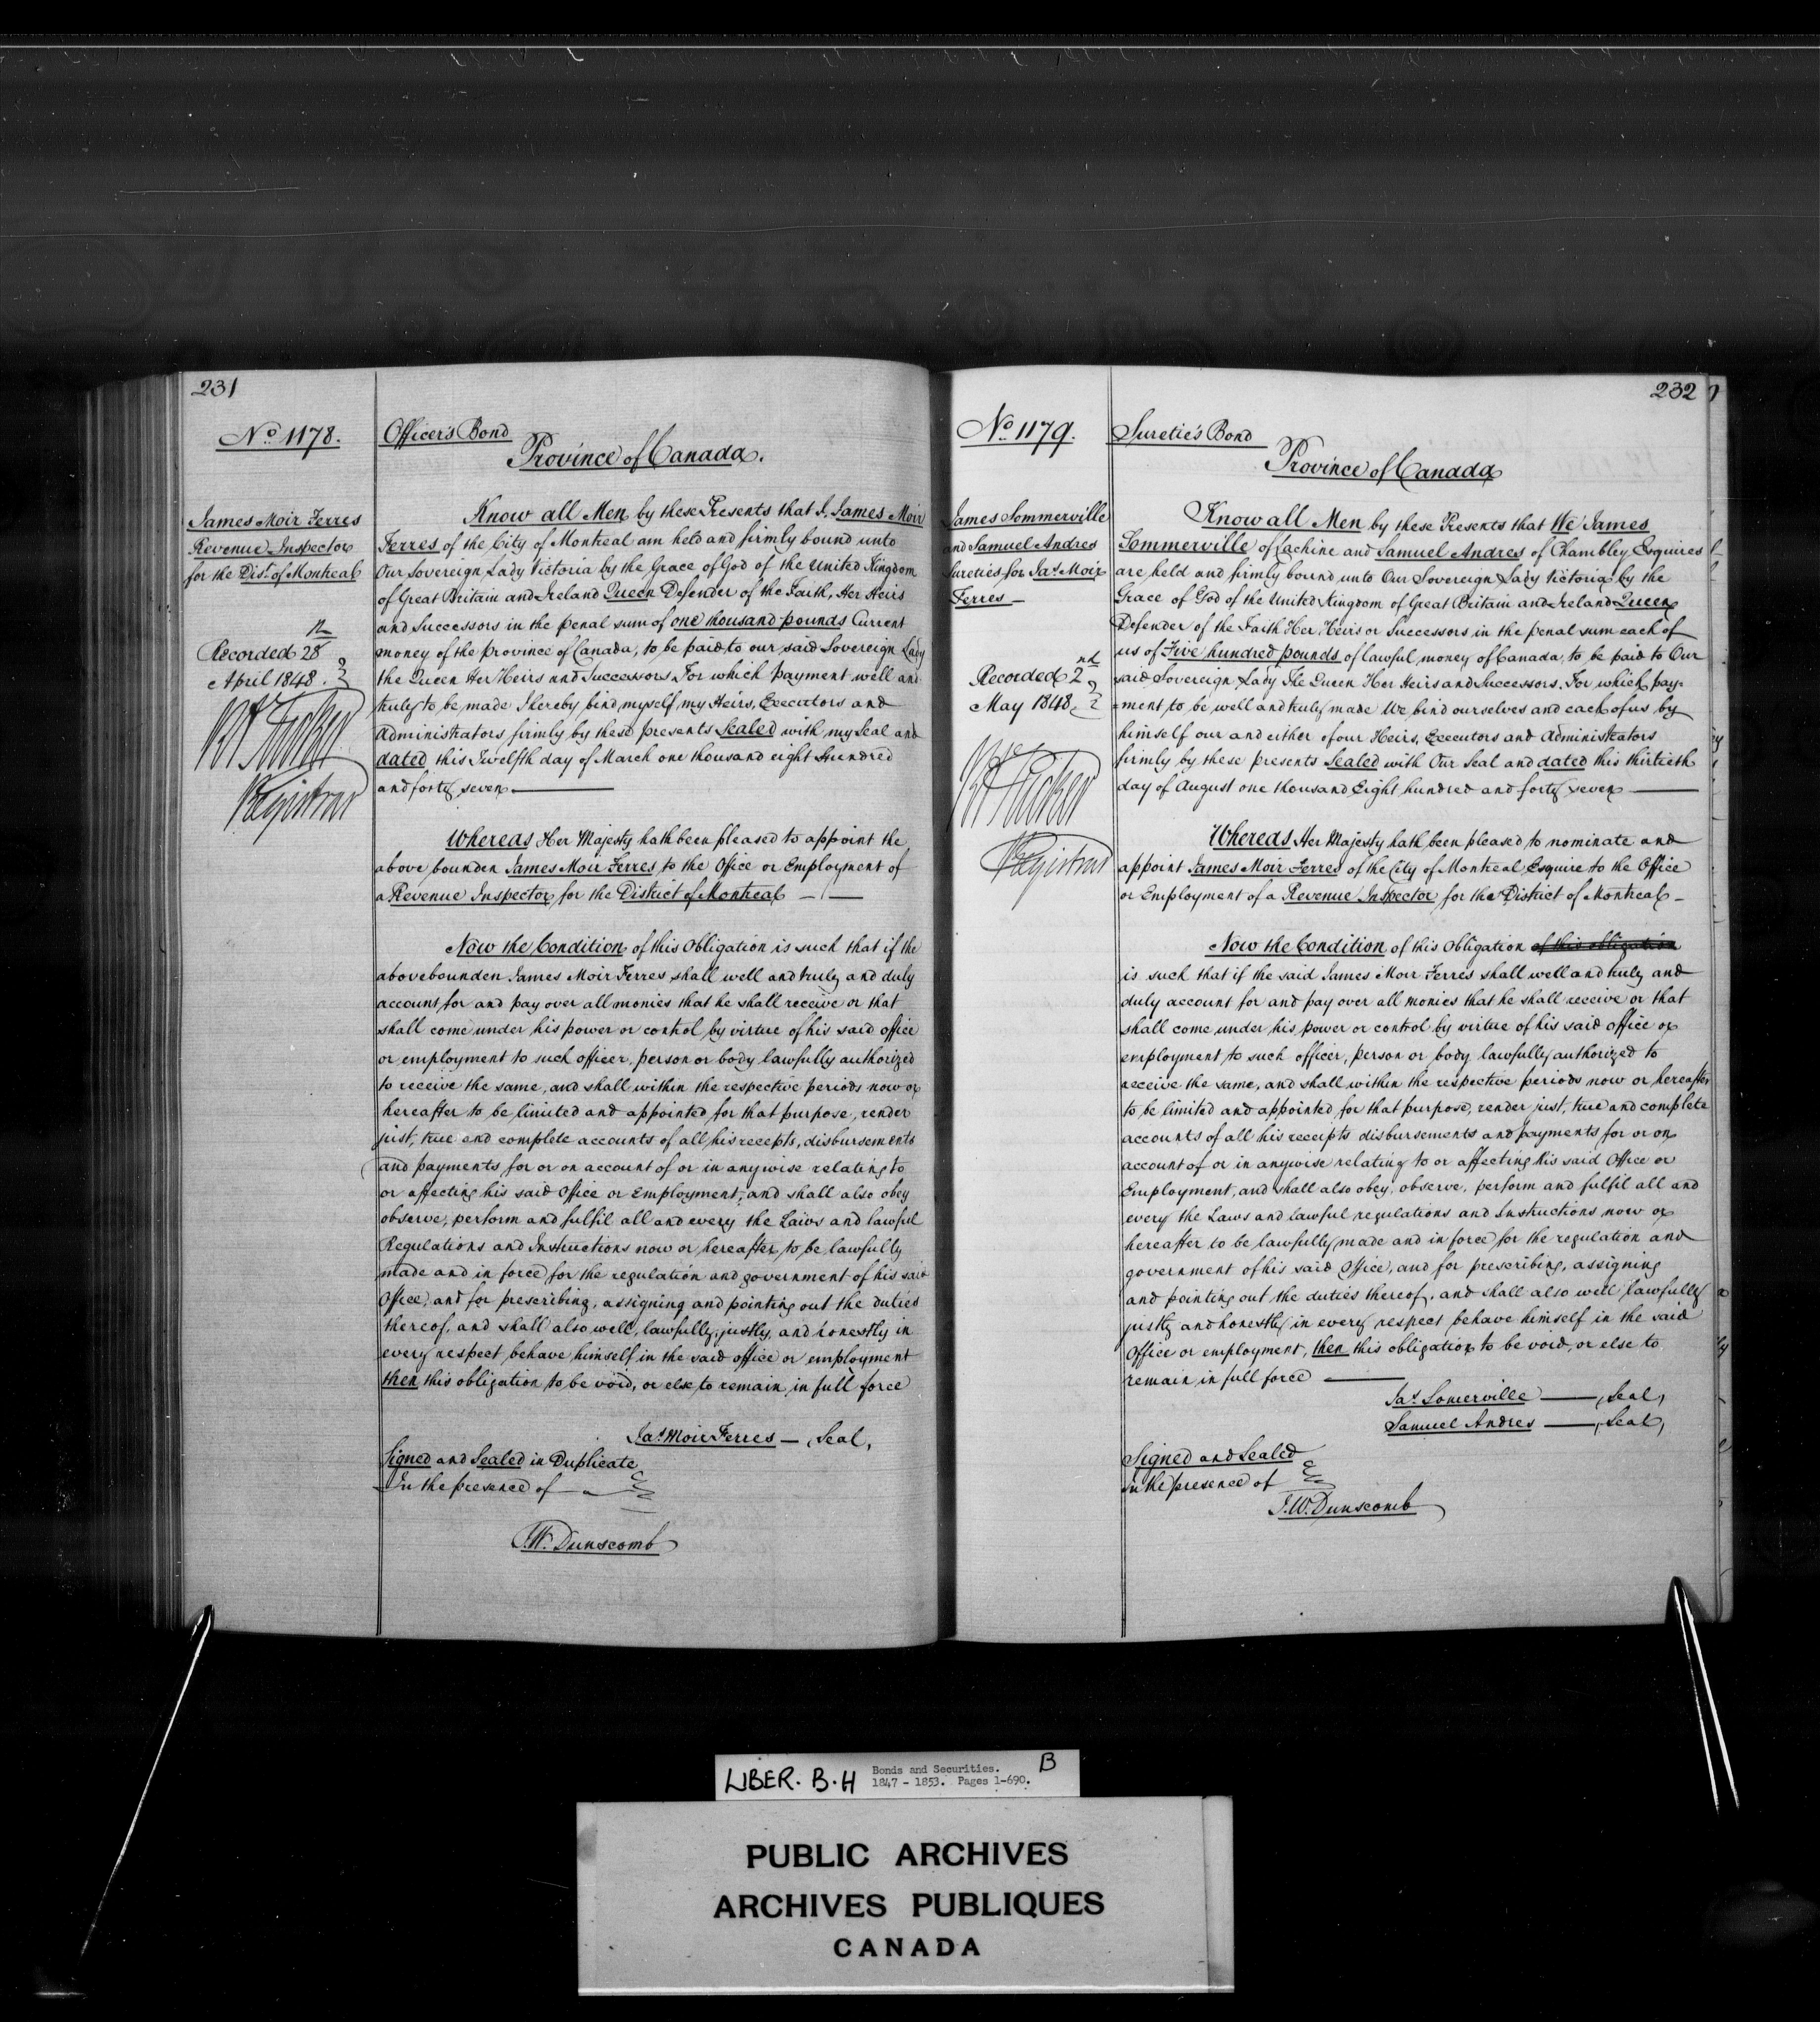 231
No. 1178.
James Moir Ferres
Revenue Inspector
for the Dist. of Montreal
Recorded 28th
April 1848.
Registrar
Officer's Bond
Province of Canada.
Know all Men by these Presents that I, James Moir
Ferres of the City of Montreal am held and firmly bound unto
Our Sovereign Lady Victoria by the Grace of God of the United Kingdom
of Great Britain and Ireland Queen Defender of the Faith, Her Heirs
and Successors in the penal sum of one thousand pounds Current
money of the province of Canada, to be paid to our said Sovereign Lady
the Queen Her Heirs and Successors. For which payment well and
truly to be made I hereby bind myself, my Heirs, Executors and
Administrators firmly by these presents Sealed with my seal and
dated this Twelfth day of March one thousand eight Hundred
and forty seven
Whereas Her Majesty hath been pleased to appoint the
above bounden James Moir Ferres to the Office or Employment of
a Revenue Inspector for the District of Montreal
Now the Condition of this Obligation is such that if the
abovebounden James Moir Ferres shall well and truly and duly
account for and pay over all monies that he shall receive or that
shall come under his power or control by virtue of his said office
or employment to such officer, person or body lawfully authorized
to receive the same, and shall within the respective periods now or
hereafter to be limited and appointed for that purpose, render
just, true and complete accounts of all his receipts, disbursements
and payments for or on account of or in anywise relating to
or affecting his said Office or Employment, and shall also obey
observe, perform and fulfil all and every the Laws and lawful
Regulations and Instructions now or hereafter to be lawfully
made and in force for the regulation and government of his said
Office, and for prescribing, assigning and pointing out the duties
thereof, and shall also well, lawfully, justly, and honestly in
every respect behave himself in the said office or employment
then this obligation to be void, or else to remain in full force
Jas. Moir Ferres — , Seal,
Signed and Sealed in Duplicate
In the presence of
J.W. Dunscomb
232
No. 1179.
James Sommerville
and Samuel Andres
Sureties for Jas. Moir
Ferres —
Recorded 2nd
May 1848
Registrar
Suretie's Bond
Province of Canada
Know all Men by these Presents that We James
Sommerville of Lachine and Samuel Andres of Chambley Esquires
are held and firmly bound unto Our Sovereign Lady Victoria by the
Grace of God of the United Kingdom of Great Britain and Ireland Queen
Defender of the Faith Her, Heirs or Successors in the penal sum each of
us of Five hundred pounds of lawful money of Canada, to be paid to Our
said Sovereign Lady The Queen Her Heirs and Successors. For which pay-
=ment to be well and truly made We bind ourselves and each of us by
himself our and either of our Heirs, Executors and Administrators
firmly by these presents Sealed with Our Seal and dated this thirtieth
day of August one thousand Eight hundred and forty seven
Whereas Her Majesty hath been pleased to nominate and
appoint James Moir Ferres of the City of Montreal Esquire to the Office
or Employment of a Revenue Inspector for the District of Montreal —
Now the Condition of this Obligation of this obligation
is such that if the said James Moir Ferres shall well and truly and
duly account for and pay over all monies that he shall receive or that
shall come under his power or control by virtue of his said office or
employment to such officer, person or body lawfully authorized to
receive the same, and shall within the respective periods now or hereafter
to be limited and appointed for that purpose, render just, true and complete
accounts of all his receipts disbursements and payments for or on
account of or in anywise relating to or affecting his said Office or
Employment, and shall also obey, observe, perform and fulfil all and
every the Laws and lawful regulations and Instructions now or
hereafter to be lawfully made and in force for the regulation and
government of his said Office, and for prescribing, assigning
and pointing out the duties thereof, and shall also well lawfully
justly and honestly in every respect behave himself in the said
Office or employment, then this obligation to be void, or else to
remain in full force
Jas. Somerville — , Seal,
Samuel Andres — , Seal,
Signed and Sealed
In the presence of
J.W. Dunscomb
LIBER. B.H Bonds and Securities. B
1847 - 1853. Pages 1-690.
PUBLIC ARCHIVES
ARCHIVES PUBLIQUES
CANADA